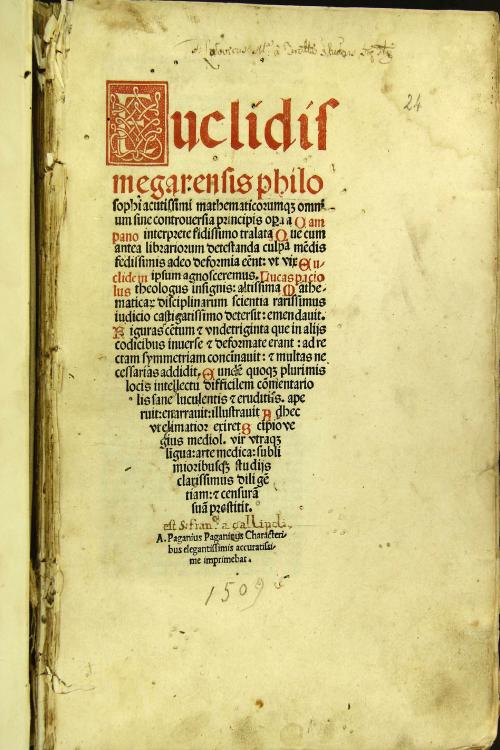 24
Euclidis
megarensis philo
sophi acutissimi mathematicorumqꝫ omni-
um sine controuersia principis oꝑa a Cam
pano interprete fidissimo tralata Que cum
antea librariorum detestanda culpa mēdis
fedissimis adeo deformia eēnt: vt vix Eu-
clidem ipsum agnosceremus. Lucas pacio
lus theologus insignis: altissima Mathe-
maticaꝝ disciplinarum scientia rarissimus
iudicio castigatissimo detersit: emendauit.
Figuras cētum ⁊ vndetriginta que in alijs
codicibus inuerse ⁊ deformate erant: ad re
ctam symmetriam concinauit: ⁊ multas ne
cessarias addidit. Eundē quoqꝫ plurimis
locis intellectu difficilem cōmentario
lis sane luculentis ⁊ eruditiss. ape
ruit: enarrauit: illustrauit Adhec
vt elimatior exiret Scipio ve
gius mediol. vir vtraqꝫ
ligua: arte medica: subli
mioribusqꝫ studijs
clarissimus diligē
tiam: ⁊ censurā
suā prestitit.
A. Paganius Paganinus Characteri-
bus elegantissimis accuratissi-
me imprimebat.
1509